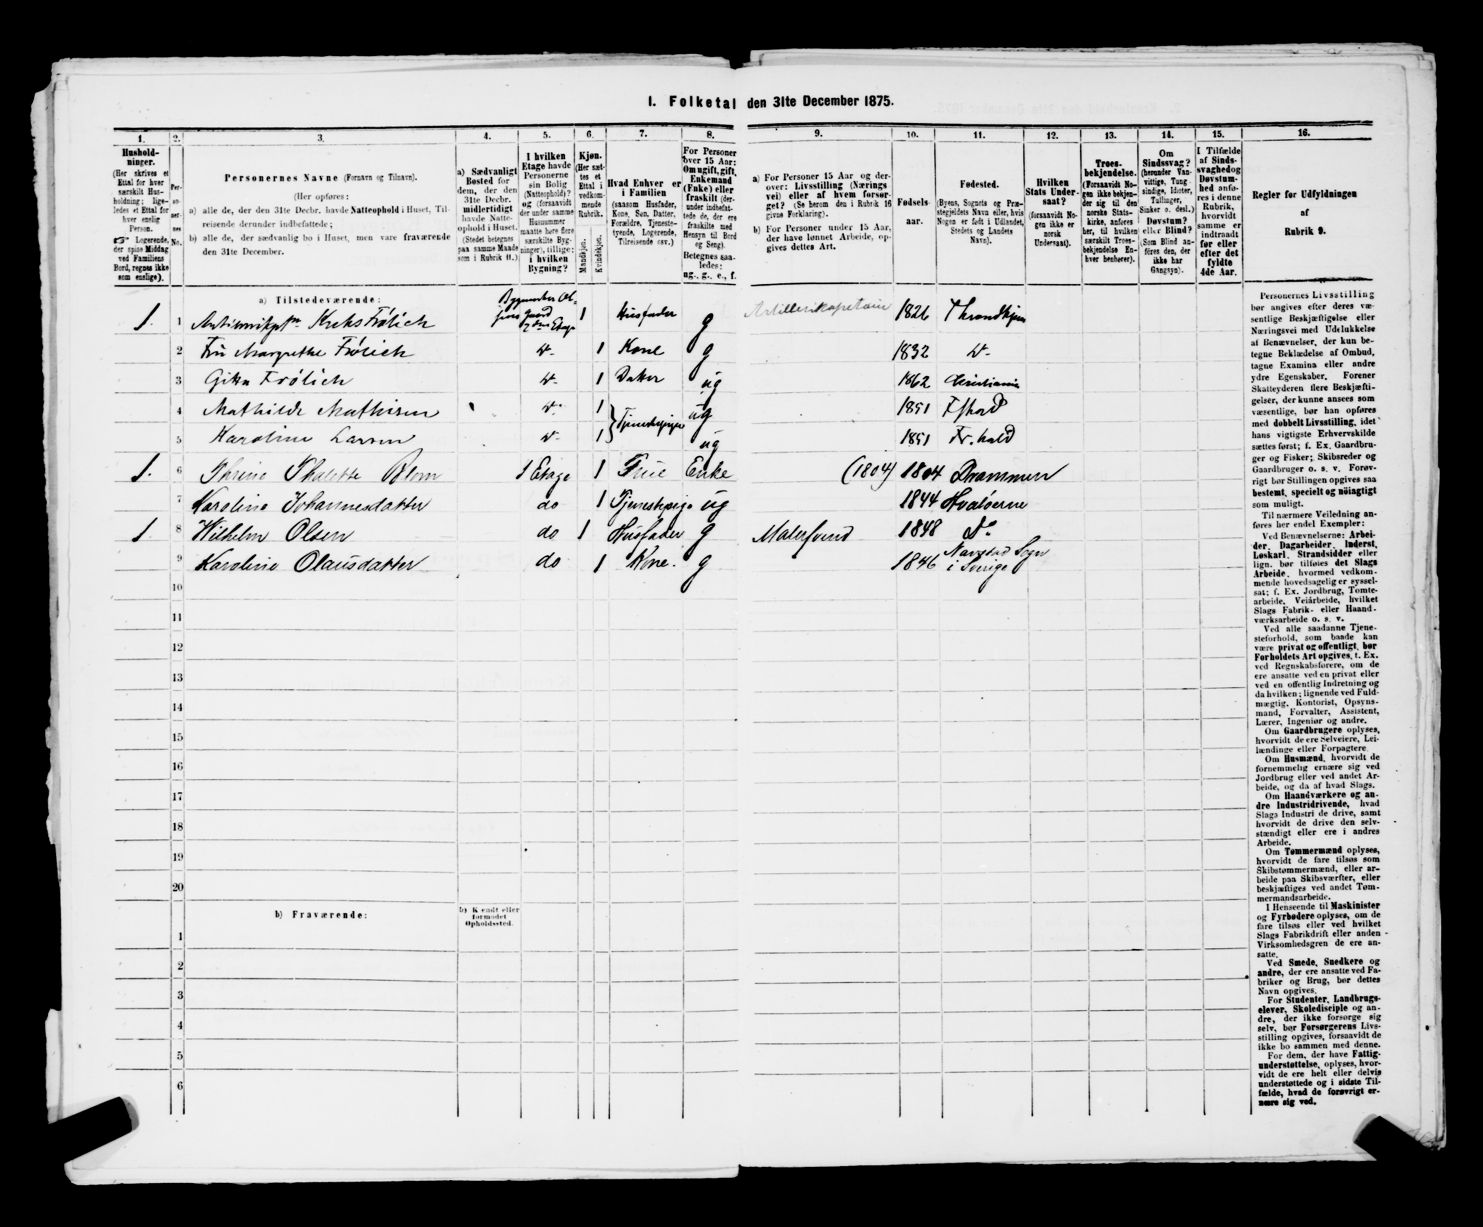 I. Folketal den 31te December 1875.
1.
2.
3.
4.
5.
6.
7.
8.
9.
10.
11.
12.
13.
14.
15.
16.
Hushold-
ninger.
(Her skrives et
Ettal for hver
særskilt Hus-
holdning; lige-
ledes et Ettal for
hver enslig
Person.
☞ Logerende,
der spise Middag
ved Familiens
Bord, regnes ikke
som enslige).
Per-
so-
ner-
nes
No.
Personernes Navne (Fornavn og Tilnavn).
(Her opføres:
a) alle de, der den 31te Decbr. havde Natteophold i Huset, Til-
reisende derunder indbefattede;
b) alle de, der sædvanlig bo i Huset, men vare fraværende
den 31te December.
a) Sædvanligt
Bosted for
dem, der den
31te Decbr.
midlertidigt
havde Natte-
ophold i Huset.
(Stedet betegnes
paa samme Maade
som i Rubrik 11.)
I hvilken
Etage havde
Personerne
sin Bolig
(Natteophold)?
og (forsaavidt
der under samme
Husnummer
maatte høre flere
særskilte Byg-
ninger), tillige:
i hvilken
Bygning?
Kjøn.
(Her sæt-
tes et
Ettal i
vedkom-
mende
Rubrik.
Mandkjøn.
Kvindekjøn.
Hvad Enhver er
i Familien
(saasom Husfader,
Kone, Søn, Datter,
Forældre, Tjeneste-
tyende, Logerende,
Tilreisende osv.)
For Personer
over 15 Aar:
Om ugift, gift,
Enkemand
(Enke) eller
fraskilt (der-
under indbefat-
tede de, der ere
fraskilte med
Hensyn til Bord
og Seng).
Betegnes saa-
ledes:
ug., g., e., f.
a) For Personer 15 Aar og der-
over: Livsstilling (Nærings
vei) eller af hvem forsør-
get? (Se herom den i Rubrik 16
givne Forklaring).
b) For Personer under 15 Aar,
der have lønnet Arbeide, op-
gives dettes Art.
Fødsels-
aar.
Fødested.
(Byens, Sognets og Præ-
stegjeldets Navn eller, hvis
Nogen er født i Udlandet,
Stedets og Landets
Navn).
Hvilken
Stats Under-
saat?
(forsaavidt No-
gen ikke er
norsk
Undersaat).
Troes-
bekjendelse.
(Forsaavidt No-
gen ikke bekjen-
der sig til den
norske Stats-
kirke, anføres
her, til hvilken
særskilt Troes-
bekjendelse En-
hver henhører).
Om
Sindssvag?
(herunder Van-
vittige, Tung-
sindige, Idioter,
Tullinger,
Sinker o. desl.)
Døvstum?
eller Blind?
(Som Blind an-
føres den, der
ikke har
Gangsyn).
I Tilfælde
af Sinds-
svaghed og
Døvstum-
hed anfø-
res i denne
Rubrik,
hvorvidt
samme er
indtraadt
før eller
efter det
fyldte
4de Aar.
Regler for Udfyldningen
af
Rubrik 9.
a) Tilstedeværende:
1. 1 Krebs Frölich 2den Etage 1 Husfader g Artillerikapitain 1826 Throndhjem
2 Fru Margrethe Frölich 1 Kone g 1832
3 Gitta Frölich 1 Datter ug 1862 Christiania
4 Mathilde Mathisen 1 Tjenestepiger ug 1851
5 Karoline Larsen 1 ug 1851 Fr.hald
1. 6 Thalette Blom 1 Etage 1 Enke (1804) 1804 Drammen
7 Karoline Johannesdatter do 1 Tjenestepige ug 1844 Hvaløerne
1 8 Wilhelm Olsen do 1 Husfader g Malersvend 1848 do
9 Karoline Olausdatter do 1 Kone. g 1846 Navestad Sogn
i Sverige
10
11
12
13
14
15
16
17
18
19
20
b) Fraværende:
b) Kjendt eller
formodet
Opholdssted.
1
2
3
4
5
6
Personernes Livsstilling
bør angives efter deres væ-
sentlige Beskjæftigelse eller
Næringsvei med Udelukkelse
af Benævnelser, der kun be-
tegne Beklædelse af Ombud,
tagne Examina eller andre
ydre Egenskaber. Forener
Skatteyderen flere Beskjæfti-
gelser, der kunne ansees som
væsentlige, bør han opføres
med dobbelt Livsstilling, idet
hans vigtigste Erhvervskilde
sættes først; f. Ex. Gaardbru-
ger og Fisker; Skibsreder og
Gaardbruger o. s. v. Forøv-
rigt bør Stillingen opgives saa
bestemt, specielt og nøiagtigt
som muligt.
Til nærmere Veiledning an-
føres her endel Exempler:
Ved Benævnelserne: Arbei-
der, Dagarbeider, Inderst,
Løskarl, Strandsidder eller
lign. bør tilføies det Slags
Arbeide, hvormed vedkom-
mende hovedsagelig er syssel-
sat; f. Ex. Jordbrug, Tomte-
arbeide, Veiarbeide, hvilket
Slags Fabrik- eller Haand-
værksarbeide o. s. v.
Ved alle saadanne Tjene-
steforhold, som baade kan
være privat og offentligt, bør
Forholdets Art opgives, f. Ex.
ved Regnskabsførere, om de
ere ansatte ved en privat eller
ved en offentlig Indretning og
da hvilken; lignende ved Fuld-
mægtig, Kontorist, Opsyns-
mand, Forvalter, Assistent,
Lærer, Ingeniør og andre.
Om Gaardbrugere oplyses,
hvorvidt de ere Selveiere, Lei-
lændinge eller Forpagtere.
Om Husmænd, hvorvidt de
fornemmelig ernære sig ved
Jordbrug eller ved andet Ar-
beide, og da af hvad Slags.
Om Haandværkere og an-
dre Industridrivende, hvad
Slags Industri de drive, samt
hvorvidt de drive den selv-
stændigt eller ere i andres
Arbeide.
Om Tømmermænd oplyses,
hvorvidt de fare tilsøs som
Skibstømmermænd, eller ar-
beide paa Skibsværfter, eller
beskjæftiges ved andet Tøm-
mermandsarbeide.
I Henseende til Maskinister
og Fyrbødere oplyses, om de
fare tilsøs eller ved hvilket
Slags Fabrikdrift eller anden
Virksomhedsgren de ere an-
satte.
Ved Smede, Snedkere og
andre, der ere ansatte ved Fa-
briker og Brug, bør dettes
Navn opgives.
For Studenter, Landbrugs-
elever, Skoledisciple og an-
dre, der ikke forsørge sig
selv, bør Forsørgerens Livs-
stilling opgives, forsaavidt de
ikke bo sammen med denne.
For dem, der have Fattig-
understøttelse, oplyses, hvor-
vidt de ere helt eller delvis
understøttede og i sidste Til-
fælde, hvad de forøvrigt er-
nære sig ved.